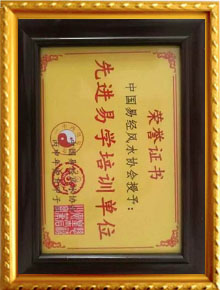 荣誉证书
中国易经风水协会授予:
先进易学培训单位